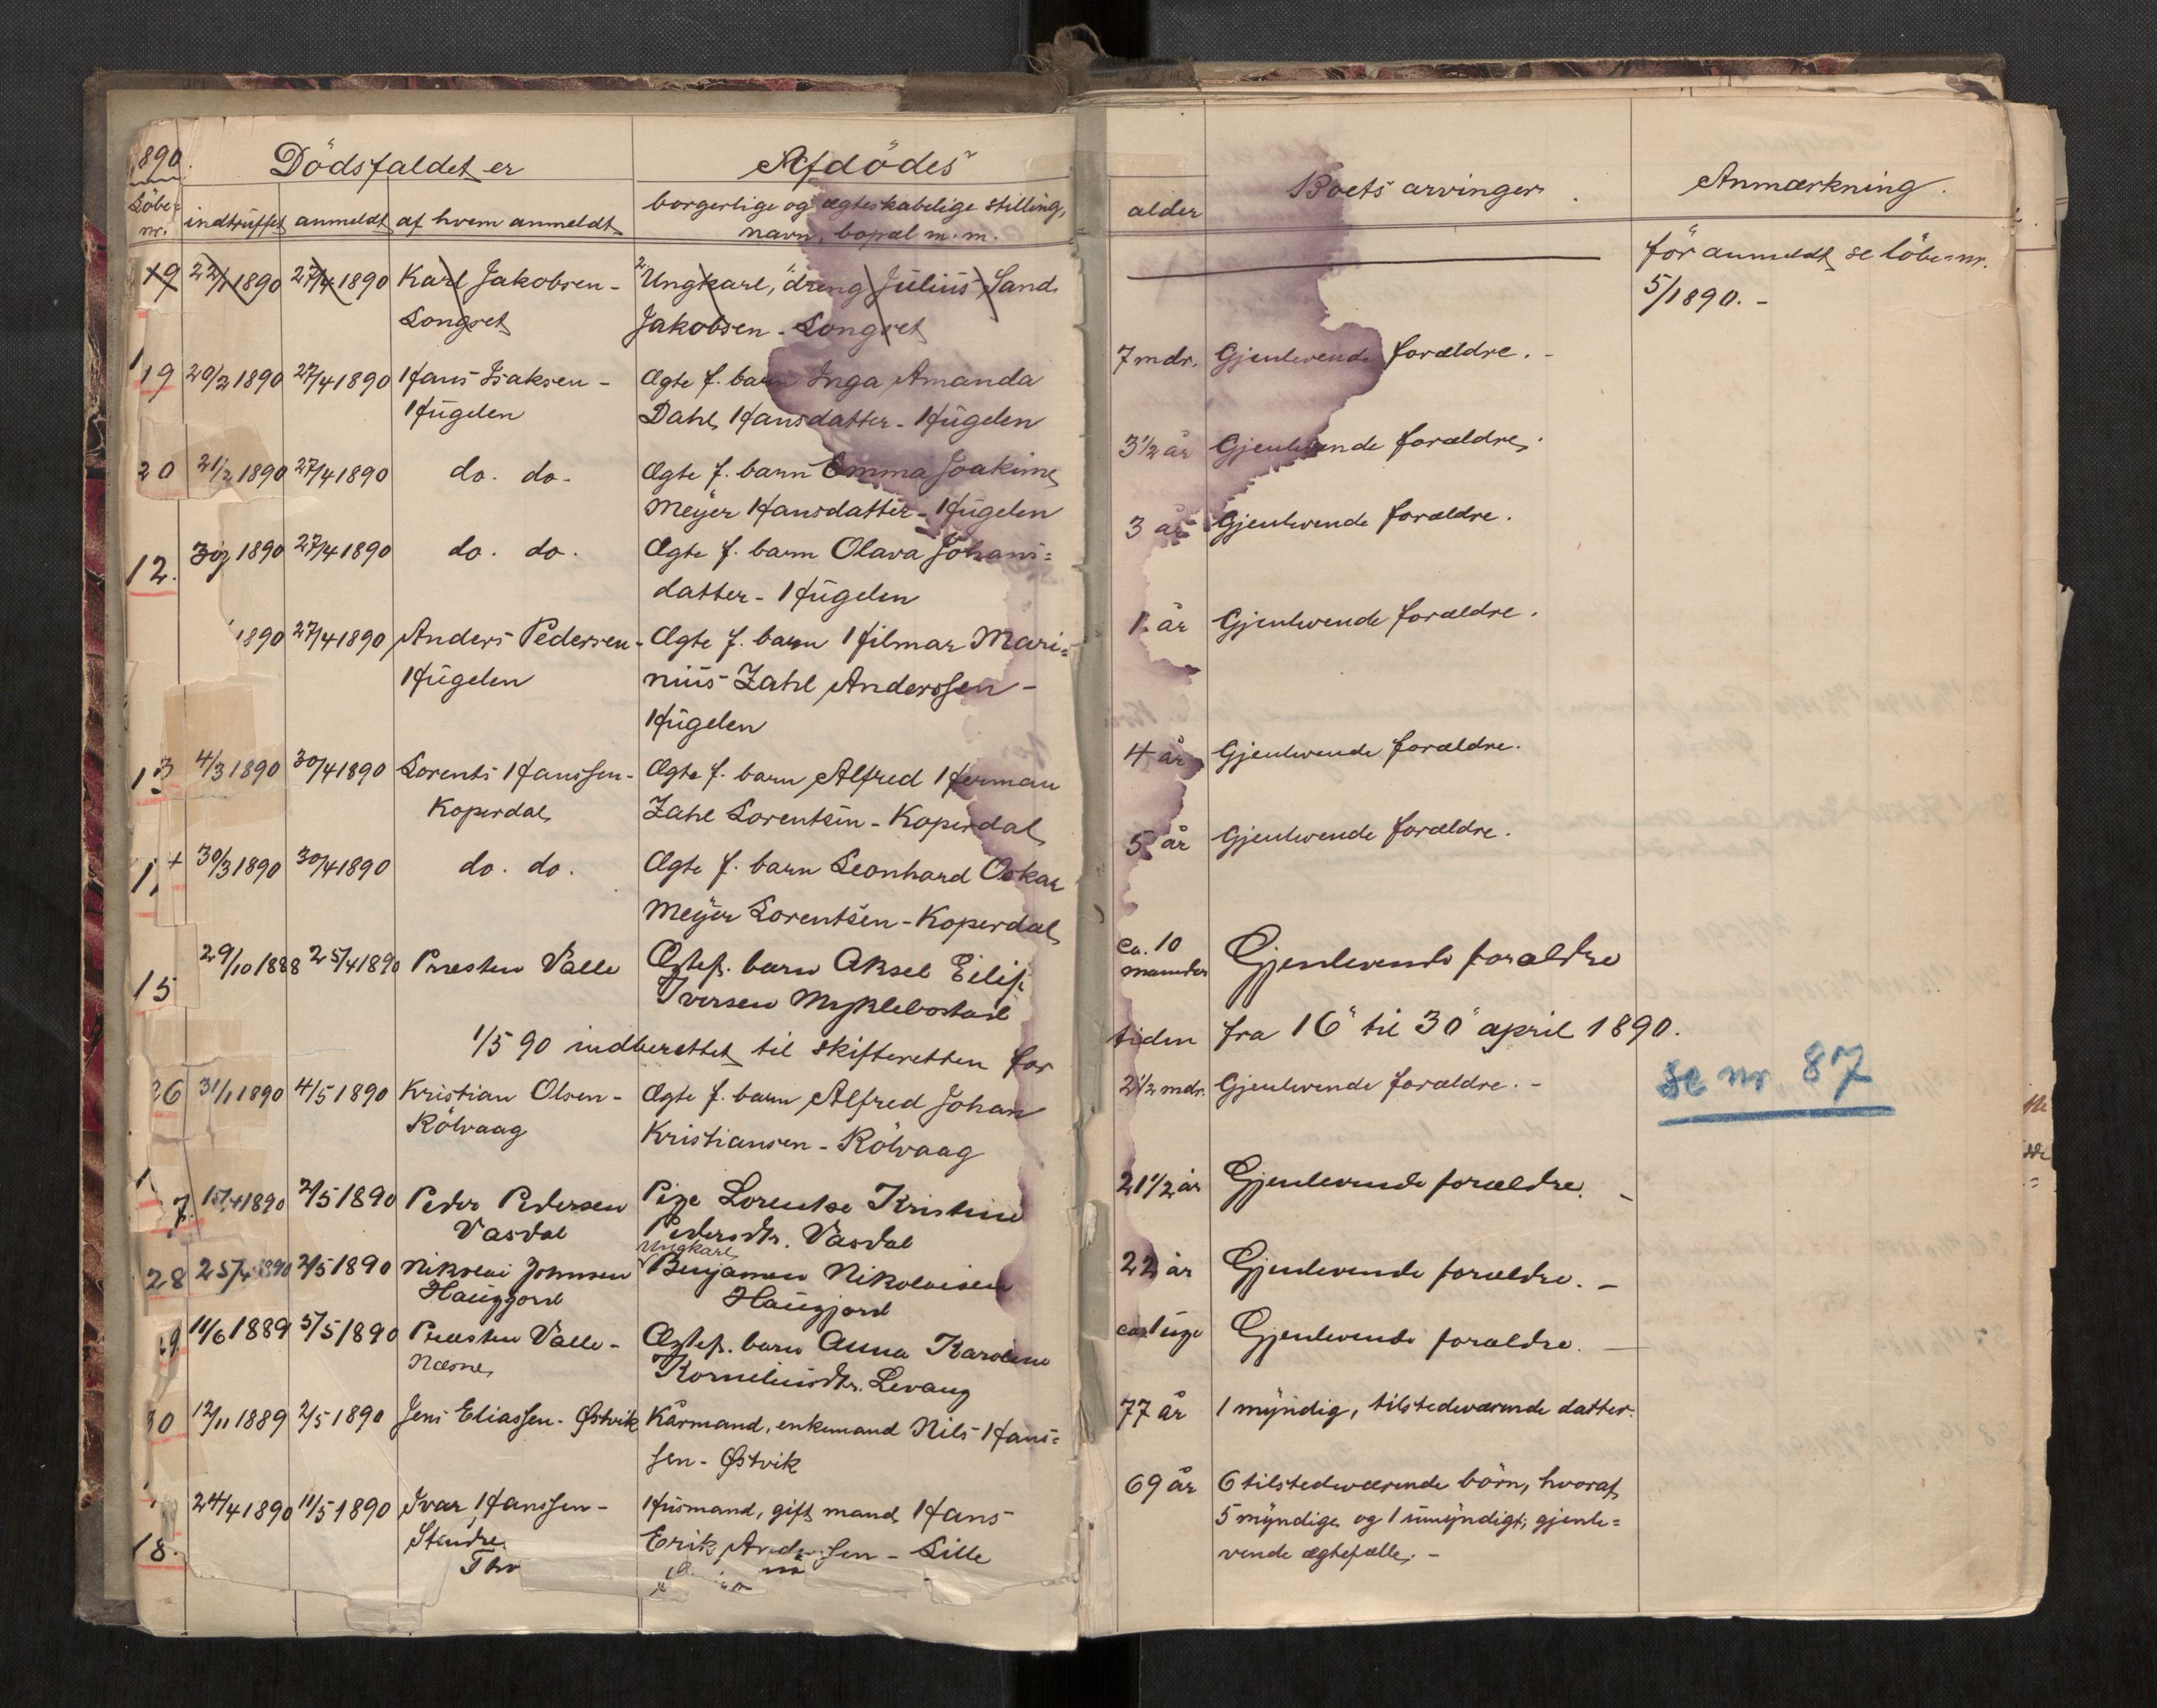 1890.
Dödsfaldet er
Afdödes
Boets arvinger.
Anmærkning.
Löbe-
nr.
indtruffet anmeldt af hvem anmeldt
borgerlige og ægteskabelige stilling,
navn, bopæl m. m.
alder
19 22/1 1890 27/4 1890 Karl Jakobsen - Ungkarl, dreng Julius Sand
Longset Jakobsen - Longset
för anmeldt se löbe-nr.
5/1890. -
19 20/2 1890 27/4 1890 Hans Isaksen - Ægte f. barn Inga Amanda 7 mdr. Gjenlevende forældre. -
Hugelen Dahl Hansdatter - Hugelen
20 21/2 1890 27/4 1890 do. do. Ægte f. barn Emma Joakime 3 1/2 år Gjenlevende forældre.
Meyer Hansdatter - Hugelen
12. 1890 27/4 1890 do. do. Ægte f. barn Olava Johans= 3 år Gjenlevende forældre.
datter - Hugelen
1890 27/4 1890 Anders Pedersen - Ægte f. barn Hilmar Mari= 1 år Gjenlevende forældre.
Hugelen nius Zahl Anderssen -
Hugelen
13 4/3 1890 30/4 1890 Lorents Hanssen - Ægte f. barn Alfred Herman 4 år Gjenlevende forældre.
Koperdal Zahl Lorentsen - Koperdal
30/3 1890 30/4 1890 do. do. Ægte f. barn Leonhard Oskar 5 år Gjenlevende forældre.
Meyer Lorentsen - Koperdal
15 29/10 1888 25/4 1890 Præsten Valle Ægtef. barn Aksel Eilif ca. 10 Gjenlevende forældre
Iversen Myklebostad maaneder
1/5 90 indberettet til skifteretten for tiden fra 16 til 30 april 1890.
26 31/1 1890 4/5 1890 Kristian Olsen - Ægte f. barn Alfred Johan 2 1/2 mdr. Gjenlevende forældre. - se nr 87
Rölvaag Kristiansen - Rölvaag
7. 15/4 1890 2/5 1890 Peder Pedersen Pige Lorentse Kristine 21 1/2 år Gjenlevende forældre. -
Vasdal Pedersdtr. Vasdal
Ungkarl
28 25/4 1890 2/5 1890 Nikolai Johnsen Benjamen Nikolaisen 22 år Gjenlevende forældre. -
Haugjord Haugjord
9 11/6 1889 5/5 1890 Præsten Valle - Ægtef. barn Anna Karoline ca 1 uge Gjenlevende forældre. -
Næsne Korneliusdtr. Levang
30 12/11 1889 2/5 1890 Jens Eliassen - Østvik Kårmand, enkemand Nils Hans= 77 år 1 myndig, tilstedeværende datter.
sen - Østvik
24/4 1890 11/5 1890 Ivar Hanssen - Husmand, gift mand Hans 69 år 6 tilstedeværende börn, hvoraf
18. Stendre Erik Andersen - Lille 5 myndige og 1 umyndigt; gjenle=
vende ægtefælle. -